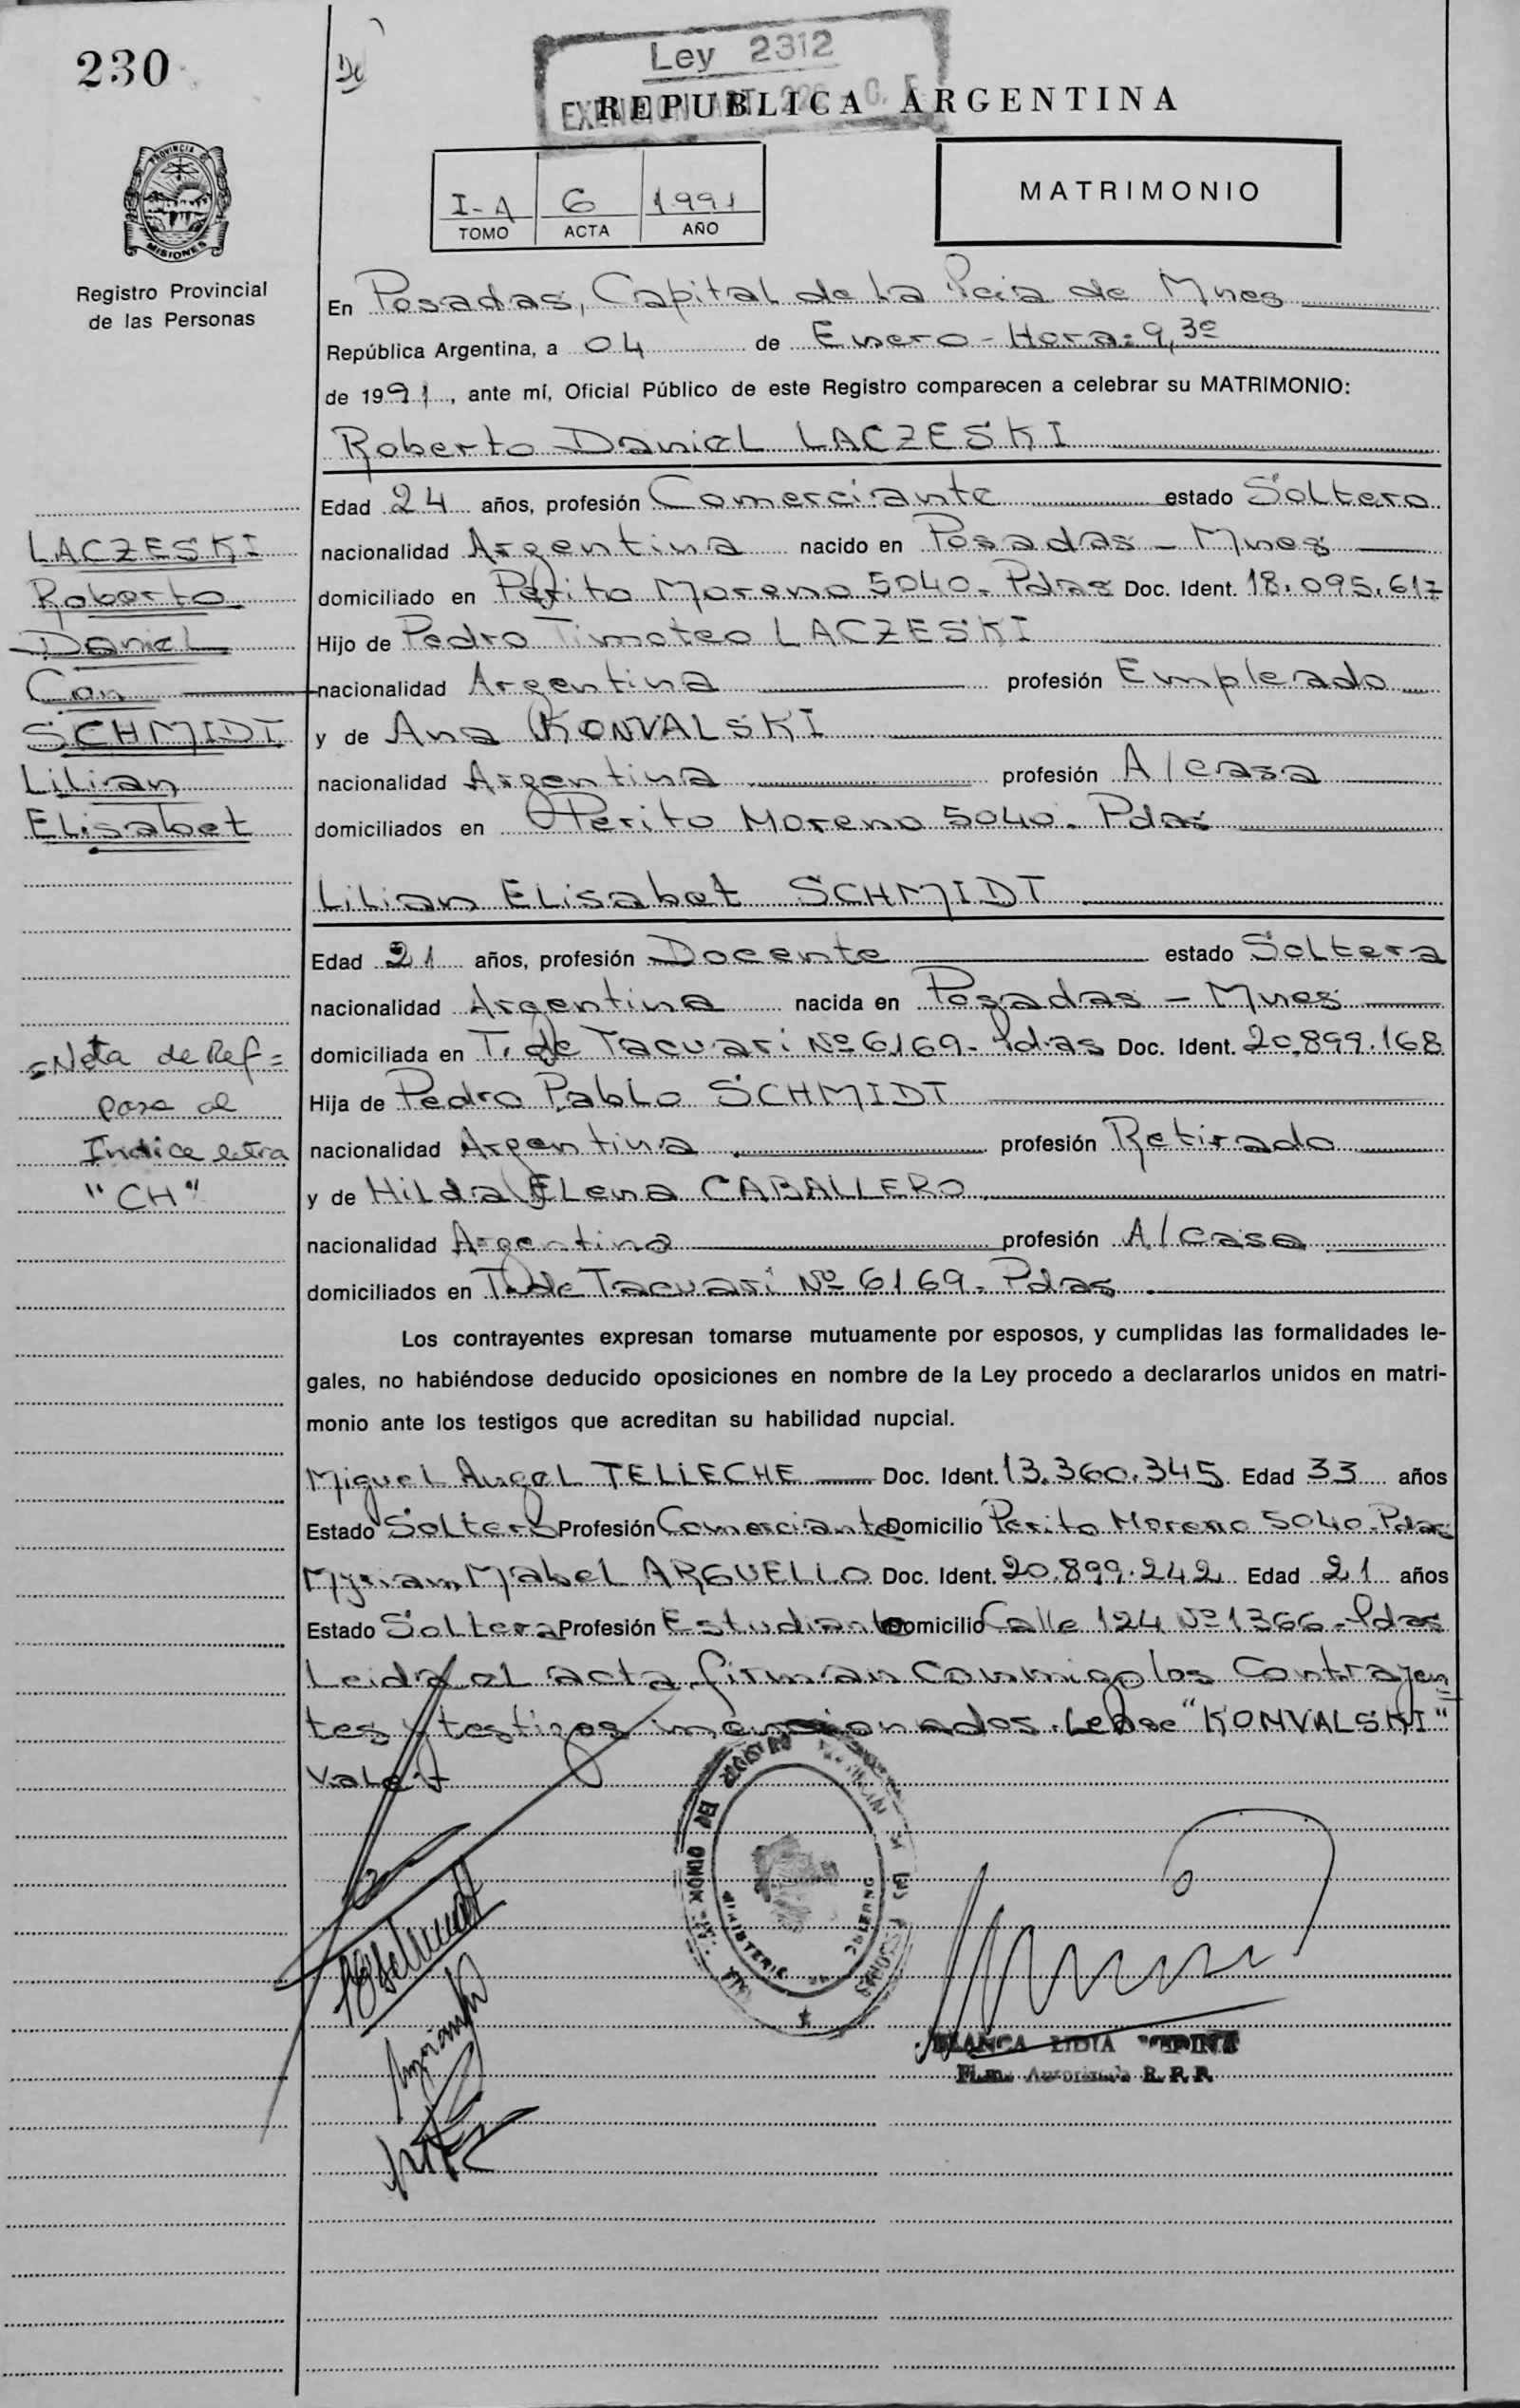 230
Ley 2312
EXENCION ART. 226 - C. F.
REPUBLICA ARGENTINA
PROVINCIA DE
MISIONES
Registro Provincial
de las Personas
I-A 6 1991
TOMO ACTA AÑO
MATRIMONIO
En Posadas, Capital de La Pcia de Mnes
República Argentina, a 04 de Enero - Hora: 9,30
de 1991, ante mí, Oficial Público de este Registro comparecen a celebrar su MATRIMONIO:
Roberto Daniel LACZESKI
Edad 24 años, profesión Comerciante estado Soltero
nacionalidad Argentina nacido en Posadas - Mnes
domiciliado en Perito Moreno 5040. Pdas Doc. Ident. 18.095.617
Hijo de Pedro Timoteo LACZESKI
nacionalidad Argentina profesión Empleado
y de Ana KONVALSKI
nacionalidad Argentina profesión A/casa
domiciliados en Perito Moreno 5040. Pdas
LACZESKI
Roberto
Daniel
Con
SCHMIDT
Lilian
Elisabet
Lilian Elisabet SCHMIDT
Edad 21 años, profesión Docente estado Soltera
nacionalidad Argentina nacida en Posadas - Mnes
domiciliada en T. de Tacuari Nº 6169. Pdas Doc. Ident. 20.899.168
Hija de Pedro Pablo SCHMIDT
nacionalidad Argentina profesión Retirado
y de Hilda Elena CABALLERO
nacionalidad Argentina profesión A/Casa
domiciliados en T. de Tacuari Nº 6169. Pdas
=Nota de Ref=
pase al
Indice letra
"CH"
Los contrayentes expresan tomarse mutuamente por esposos, y cumplidas las formalidades le-
gales, no habiéndose deducido oposiciones en nombre de la Ley procedo a declararlos unidos en matri-
monio ante los testigos que acreditan su habilidad nupcial.
Miguel Angel TELLECHE Doc. Ident. 13.360.345 Edad 33 años
Estado Soltero Profesión Comerciante Domicilio Perito Moreno 5040. Pdas
Myriam Mabel ARGUELLO Doc. Ident. 20.899.242 Edad 21 años
Estado Soltera Profesión Estudiante Domicilio Calle 124 Nº 1366. Pdas
Leida el acta firman conmigo los Contrayen
tes y testigos mencionados. Lease "KONVALSKI"
Vale.
DEL REGISTRO PROVINCIAL DE LAS PERSONAS
MINISTERIO DE GOBIERNO
BLANCA LIDIA
Firma Autorizada R. P. P.